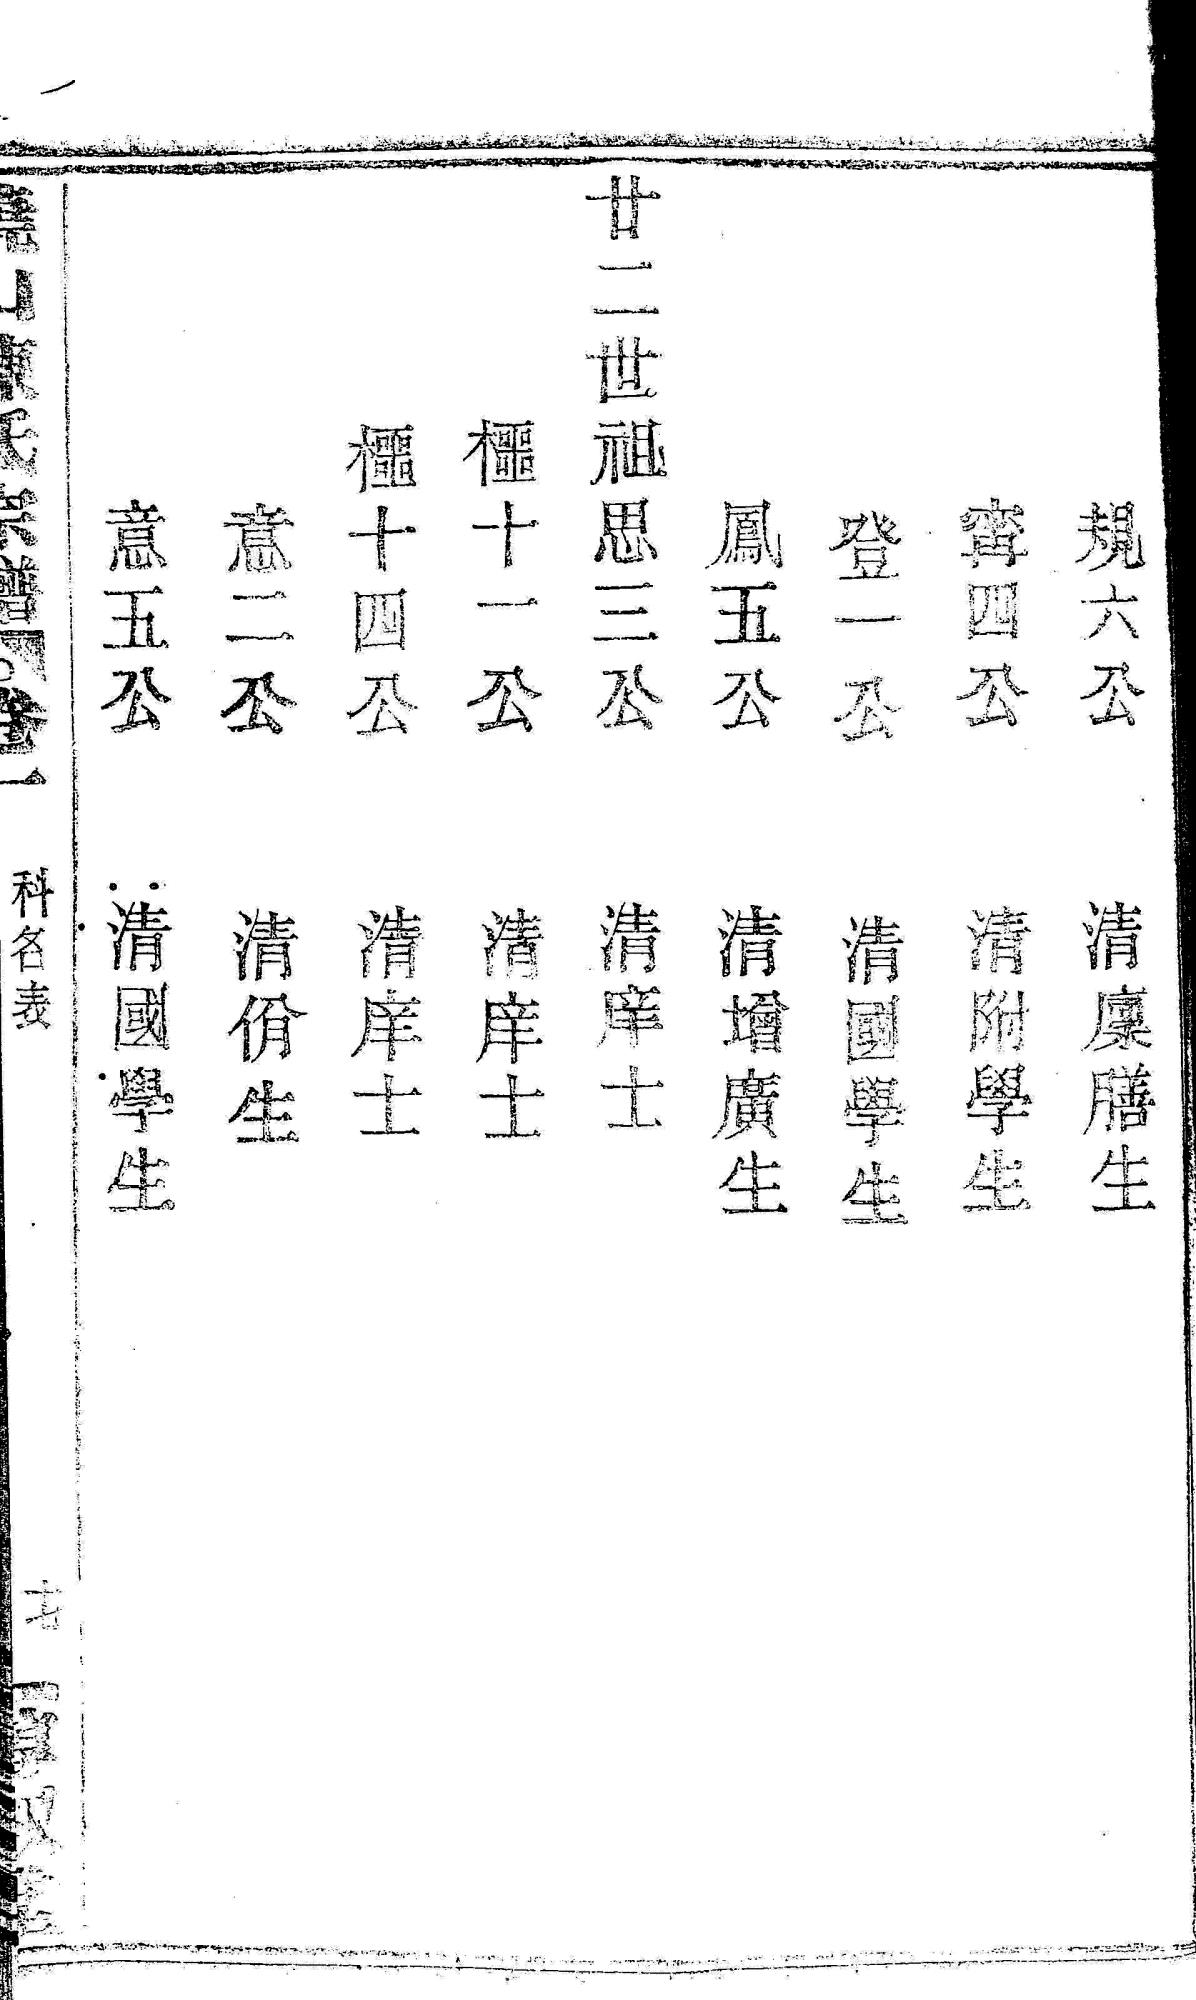 規六公 清廩膳生
甯四公 清附學生
登一公 清國學生
鳳五公 清增廣生
廿二世祖思三公 清庠士
櫮十一公 清庠士
櫮十四公 清庠士
意二公 清佾生
意五公 清國學生
氏宗譜 卷一
科名表